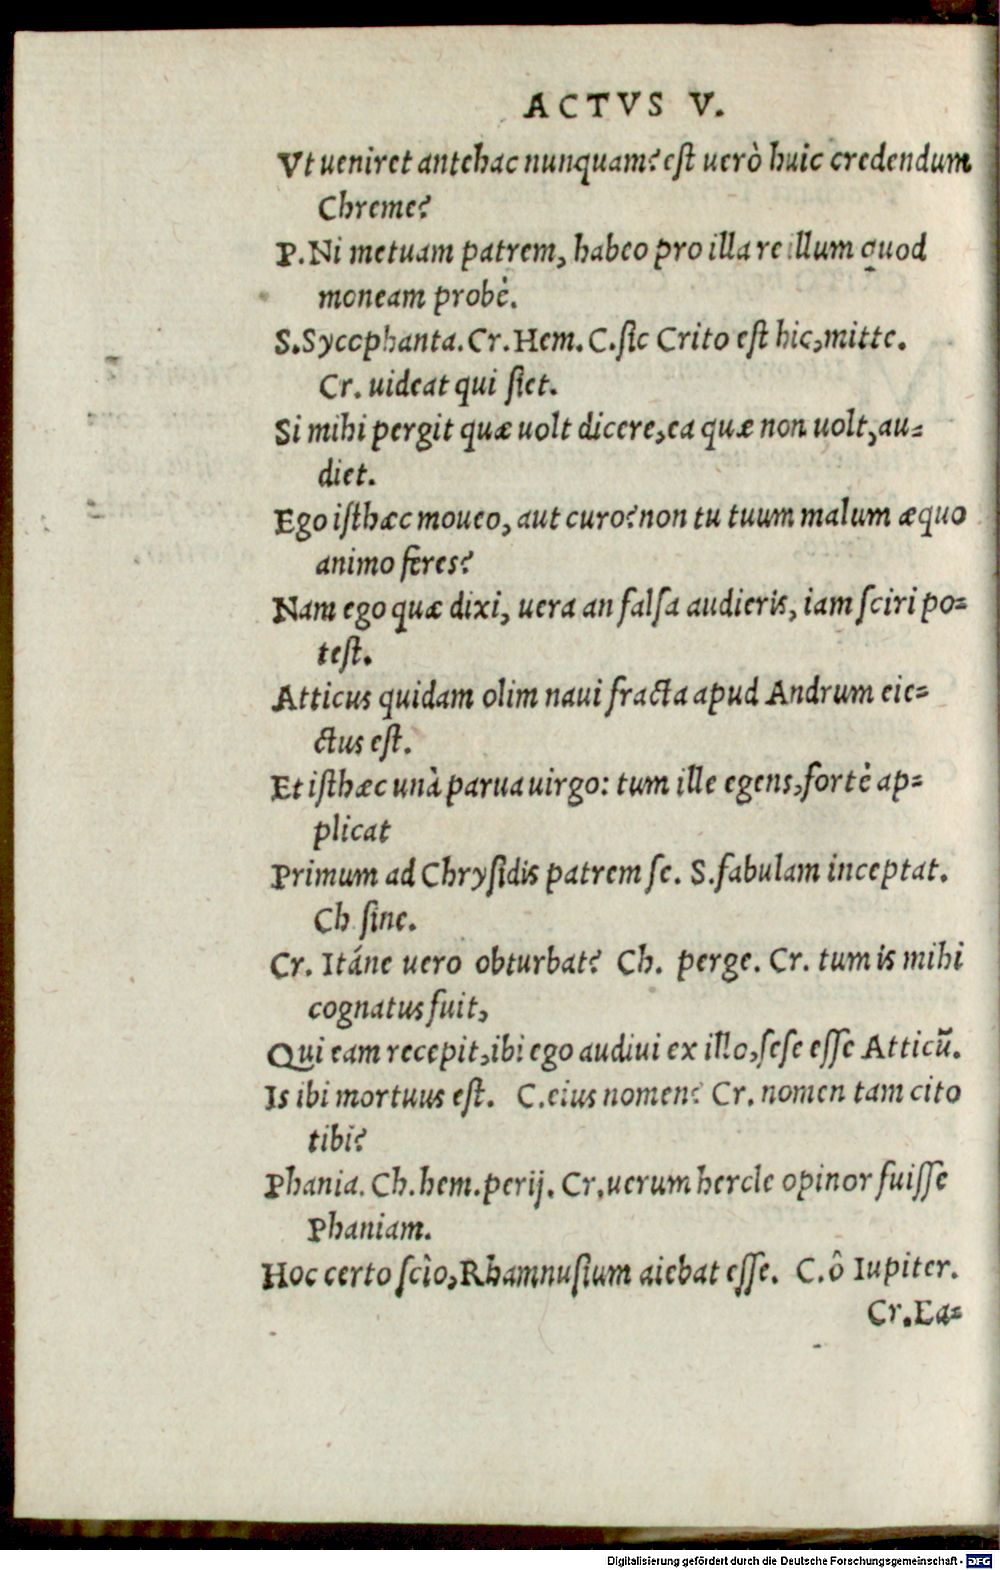 ACTVS V.
Vt ueniret antehac nunquam? est uerò huic credendum
Chreme?
P. Ni metuam patrem, habeo pro illa re illum quod
moneam probè.
S. Sycophanta. Cr. Hem. C. sic Crito est hic, mitte.
Cr. uideat qui siet.
Si mihi pergit quæ uolt dicere, ea quæ non uolt, au-
diet.
Ego isthæc moueo, aut curo? non tu tuum malum æquo
animo feres?
Nam ego quæ dixi, uera an falsa audieris, iam sciri po-
test.
Atticus quidam olim naui fracta apud Andrum eie-
ctus est.
Et isthæc unà parua uirgo: tum ille egens, fortè ap-
plicat
Primum ad Chrysidis patrem se. S. fabulam inceptat.
Ch sine.
Cr. Itáne uero obturbat? Ch. perge. Cr. tum is mihi
cognatus fuit,
Qui eam recepit, ibi ego audiui ex illo, sese esse Atticū.
Is ibi mortuus est. C. eius nomen? Cr. nomen tam cito
tibi?
Phania. Ch. hem. perij. Cr. uerum hercle opinor fuisse
Phaniam.
Hoc certo scìo, Rhamnusium aiebat esse. C. ô Iupiter.
Cr. Ea-
Digitalisierung gefördert durch die Deutsche Forschungsgemeinschaft - DFG